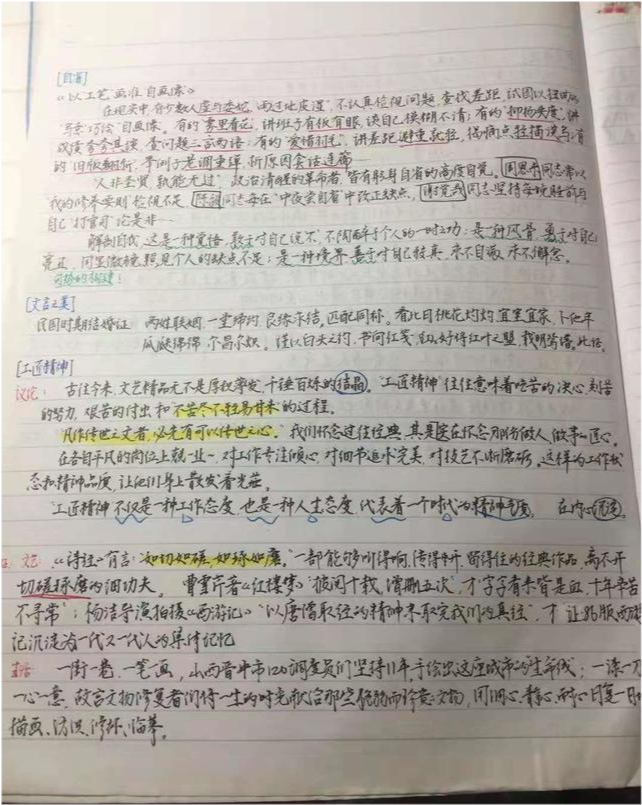 [自省]
《以工笔画准自画像》
在现实中,有少数人虚与委蛇,
不认真检视问题,查找差距,试图以扭曲的
自画像。有的"雾里看花",讲班子有板有眼,谈自己模糊不清;有的"抑扬失度",讲
成绩 查问题三言两语;有的"爱惜羽毛",讲差距避重就轻,
的"旧版翻新",事例老调重弹,析原因
"人非圣贤,孰能无过"政治清醒的革命者,皆有躬身自省的高度自觉。周恩来同志常以
我的修养要则检视不足,陈毅同志每在"中夜尝自省"中改正缺点,谢觉哉同志坚持每晚睡前与
自己"打官司"论是非…
解剖自我,这是一种觉悟,敢于对自己说不,不陶醉于个人的一时之功;是一种风骨,勇于对自己
亮丑,用显微镜照见个人的缺点不足;是一种境界,善于对自己较真,永不自满,永不懈怠。
[文言之美]
民国时期结婚证 两姓联姻,一堂缔约,良缘永结,匹配同称。看此日桃花灼灼,宜室宜家,卜他年
瓜瓞绵绵,尔昌尔炽。谨以白头之约,书向红笺,好将红叶之盟,载明鸳谱。此证
[工匠精神]
议论: 古往今来,文艺精品无不是厚积薄发、千锤百炼的结晶。"工匠精神"往往意味着吃苦的决心,刻苦
的努力,艰苦的付出和不苦尽不轻易甘来的过程。
"凡作传世之文者,必先有可以传世之心。"我们怀念过往经典,其是在怀念那份做人、做事的匠心。
在各自平凡的岗位上就业~,对工作专注倾心,对细节追求完美,对技艺不断磨砺。这样的工作状
态和精神品质,让他们身上散发着光芒。
工匠精神不仅是一种工作态度,也是一种人生态度,代表着一个时代的精神气质。 在内心沉淀
文艺:《诗经》有言:"如切如磋,如琢如磨。"一部能够叫得响、传得开、留得住的经典作品,离不开
切磋琢磨的细功夫。曹雪芹著《红楼梦》"披阅十载,增删五次",才"字字看来皆是血,十年辛苦
不寻常";杨洁导演拍摄《西游记》"以唐僧取经的精神来取完我们的真经",才让
记沉淀为一代又一代人的集体记忆
生活 一街一巷、一笔一画,山西晋中市120调度员们坚持11年手绘出这座城市的生命线;一漆一刀
一心一意,故宫文物修复者们倾一生的时光献给那些脆弱而珍贵的文物,用细心、静心、耐心日复一日
描画、修坏、临摹。